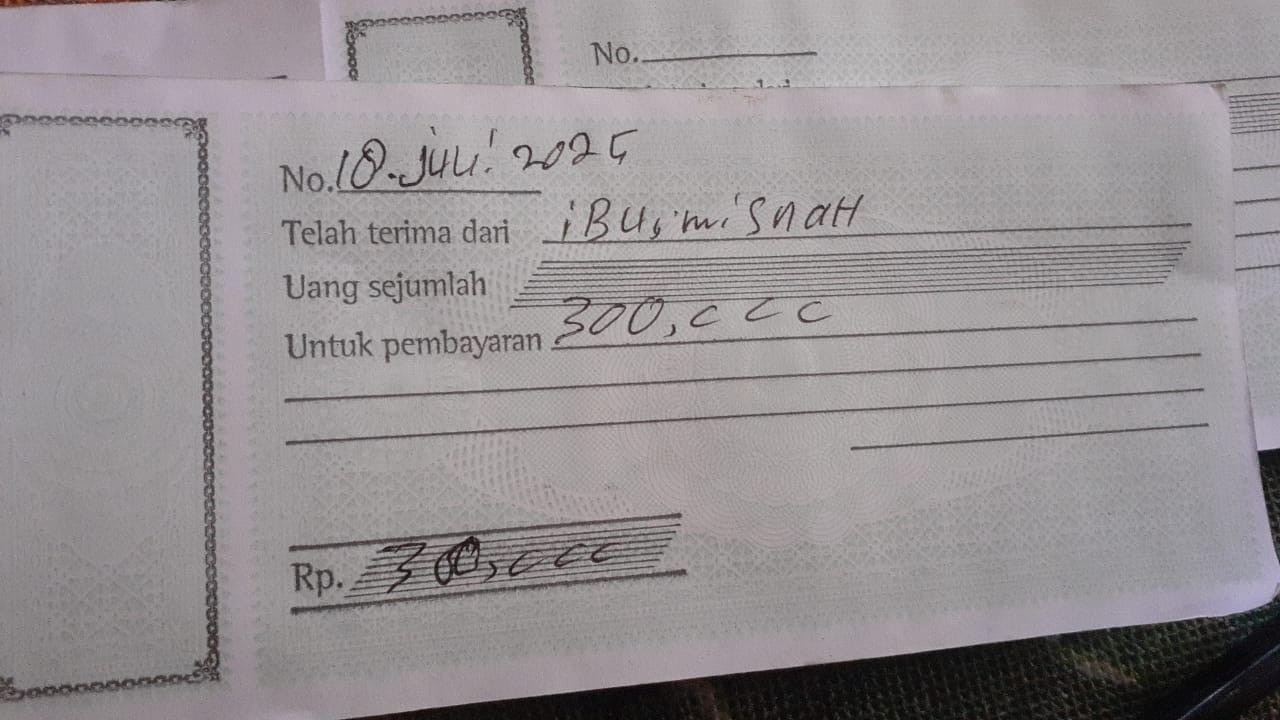 No. ________
No. 18. juli 2025
Telah terima dari iBu, misnaH
Uang sejumlah
Untuk pembayaran 300,ccc
Rp. 300,ccc